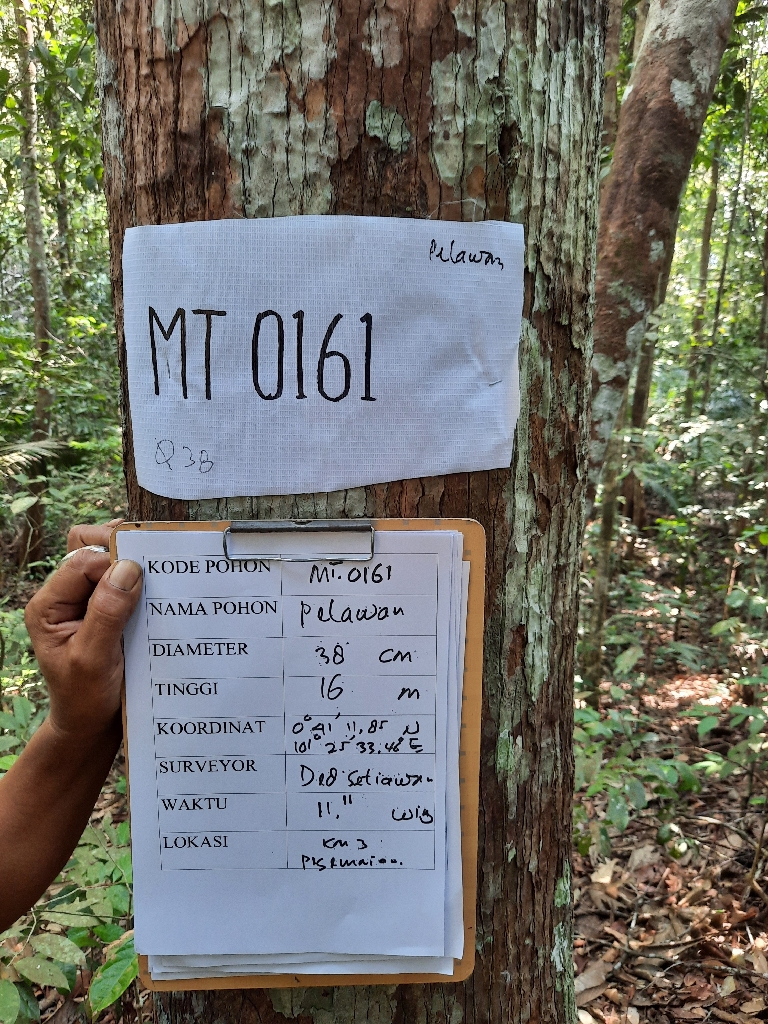 Pelawan
MT 0161
Q 38
KODE POHON MT.0161
NAMA POHON Pelawan
DIAMETER 38 cm
TINGGI 16 m
KOORDINAT 0°41'11,85 N
101°25'33.48"E
SURVEYOR Dedi Setiawan
WAKTU 11,11 WIB
LOKASI KM 3